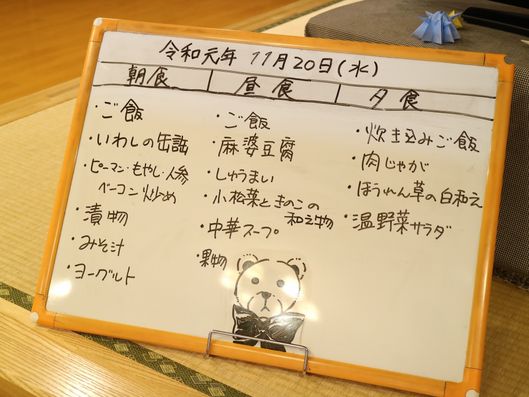 令和元年 11月20日(水)
朝食
・ご飯
・いわしの缶詰
・ピーマン・もやし・人参
ベーコン炒め
・漬物
・みそ汁
・ヨーグルト
昼食
・ご飯
・麻婆豆腐
・しゅうまい
・小松菜ときのこの
和え物
・中華スープ
・果物
夕食
・炊き込みご飯
・肉じゃが
・ほうれん草の白和え
・温野菜サラダ